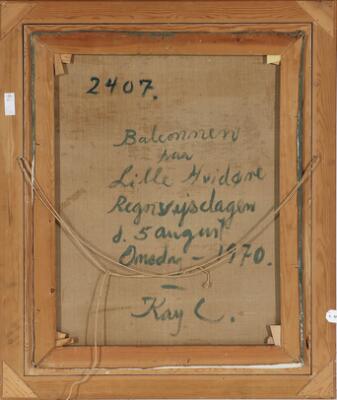 2407.
Balconnen
paa
Lille Hvidøre
Regnvejsdagen
d. 5 august
Onsdag - 1970.
Kay C.